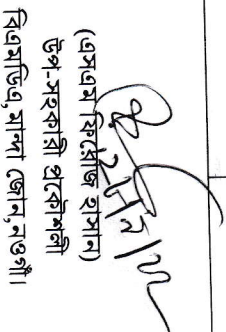 (এসএম ফিরোজ হাসান)
উপ-সহকারি প্রকৌশলী
বিএমডিএ, মান্দা জোন, নওগাঁ।